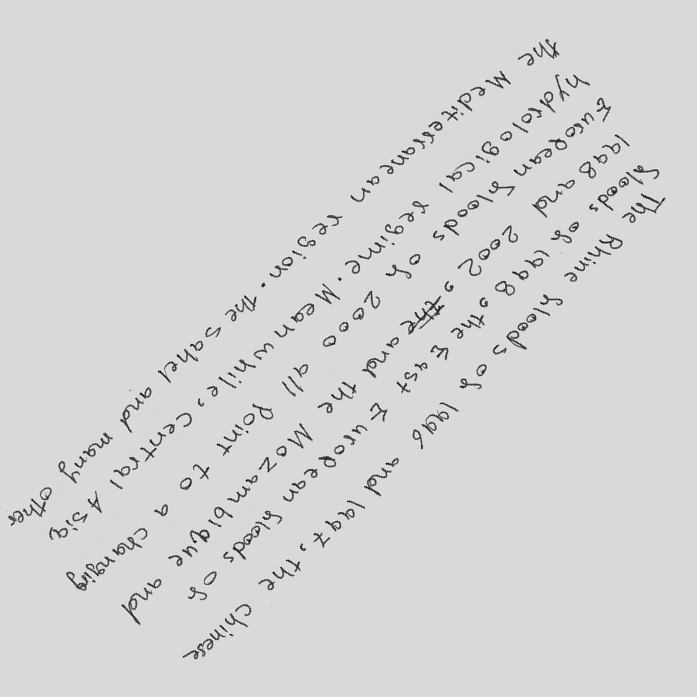 The Rhine floods of 1996 and 1997, the chinese
floods of 1998, the East European floods of
1998 and 2002, and the Mozambique and
European floods of 2000 all point to a changing
hydrological regime. Meanwhile, Central Asia,
the Mediterranean region. the sahel and many other